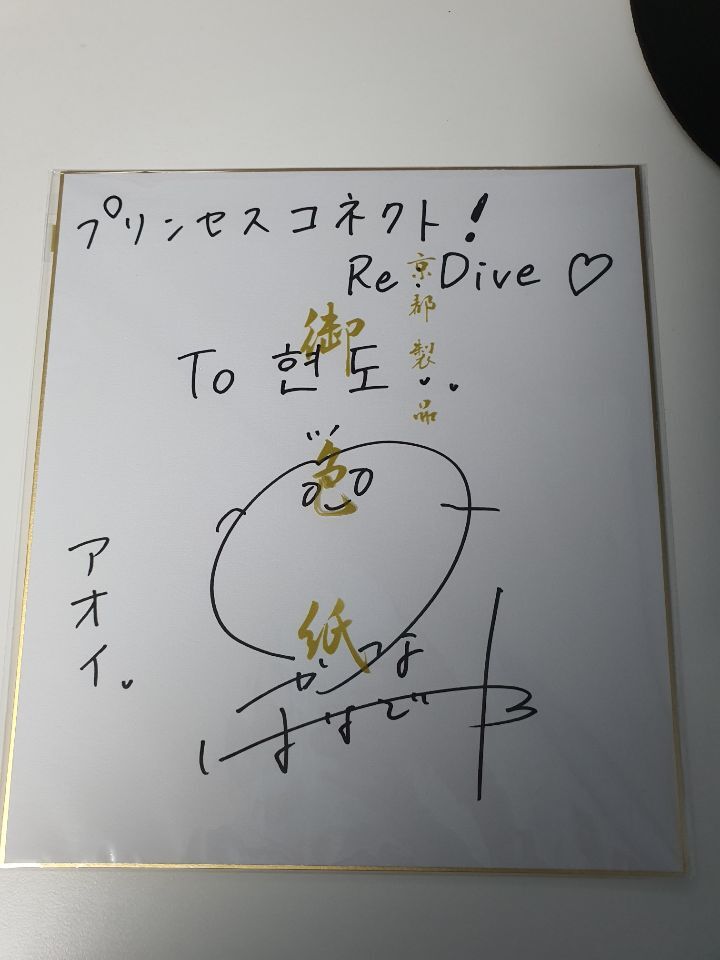 プリンセスコネクト！
Re:Dive ♡
京都 製品
御色紙
To 현도..
アオイ.
かな
はなざわ